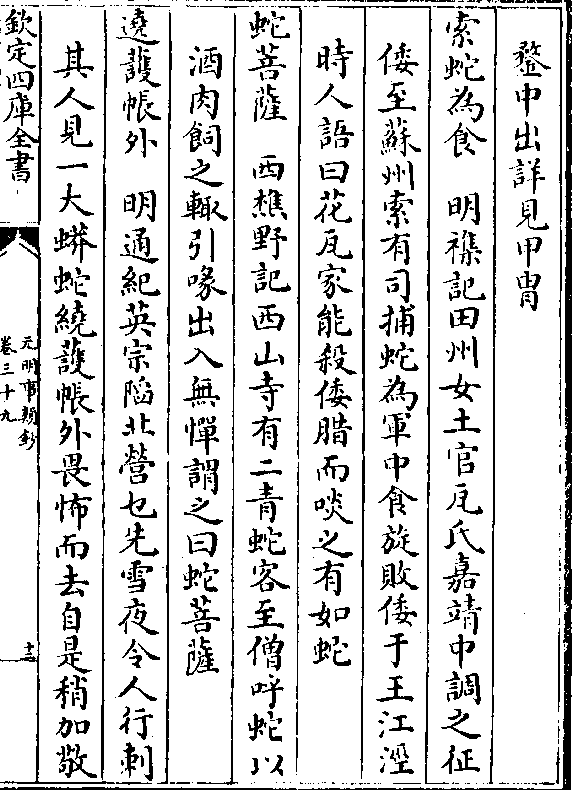 螯中出詳見甲胄
索蛇為食　明襍記田州女土官瓦氏嘉靖中調之征
倭至蘇州索有司捕蛇為軍中食旋敗倭于王江涇
時人語曰花瓦家能殺倭腊而啖之有如蛇
蛇菩薩　西樵野記西山寺有二青蛇客至僧呼蛇以
酒肉飼之輙引喙出入無憚謂之曰蛇菩薩
遶護帳外　明通紀英宗陷北營乜先雪夜令人行刺
其人見一大蟒蛇繞護帳外畏怖而去自是稍加敬
欽定四庫全書
元明事類鈔
卷三十九
十二